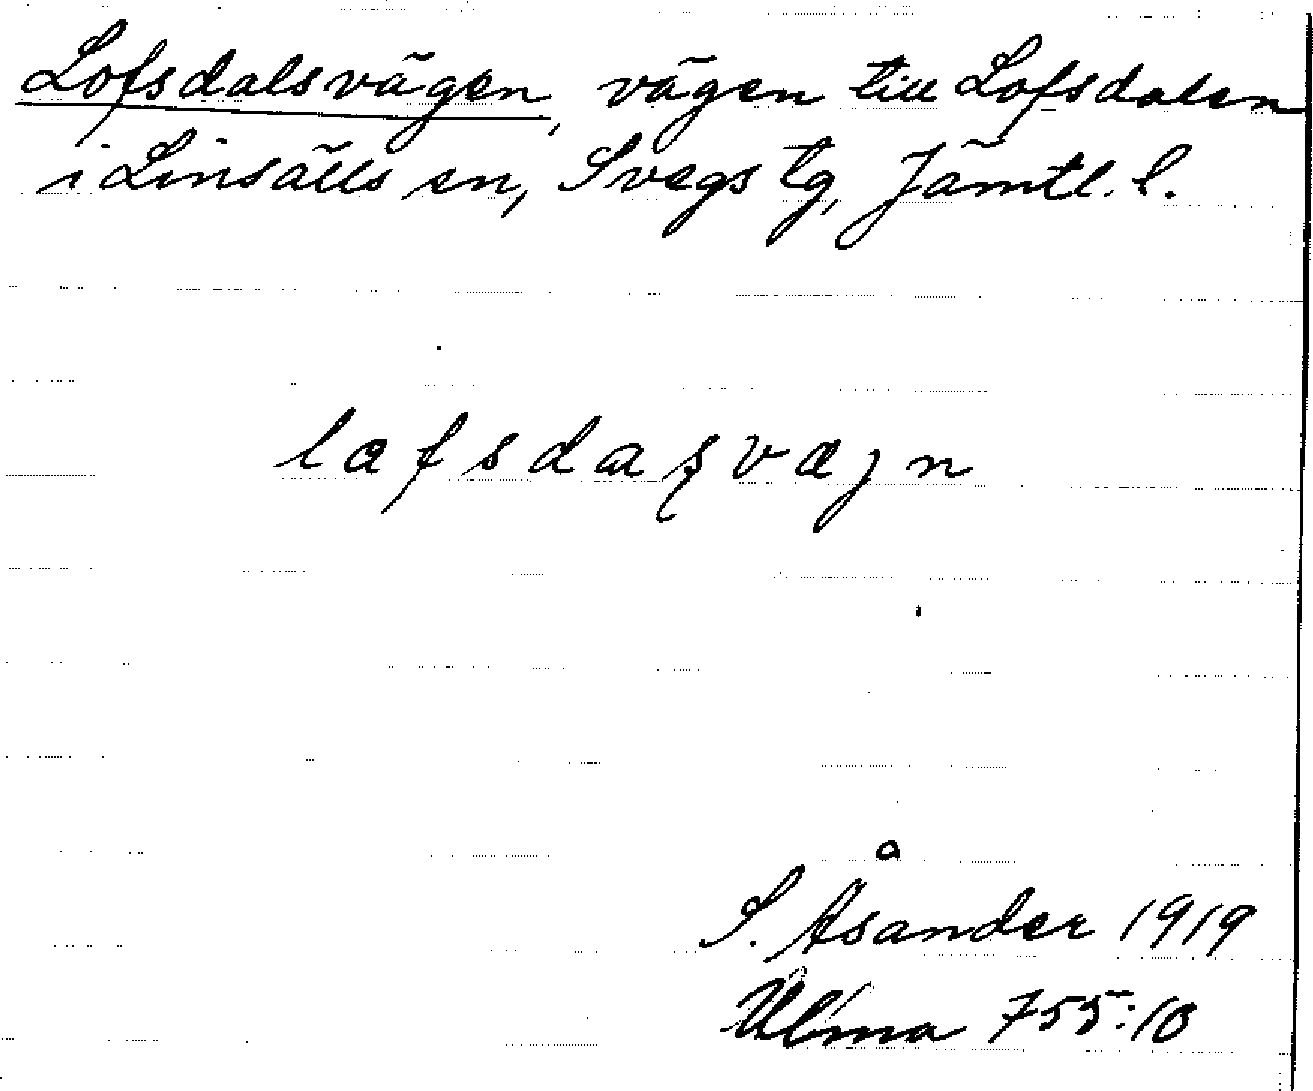 Lofsdalsvägen, vägen till Lofsdalen
i Linsälls sn, Svegs tg, Jämtl. l.
lafsdaʂvæjn
S. Åsander 1919
Ulma 755:10